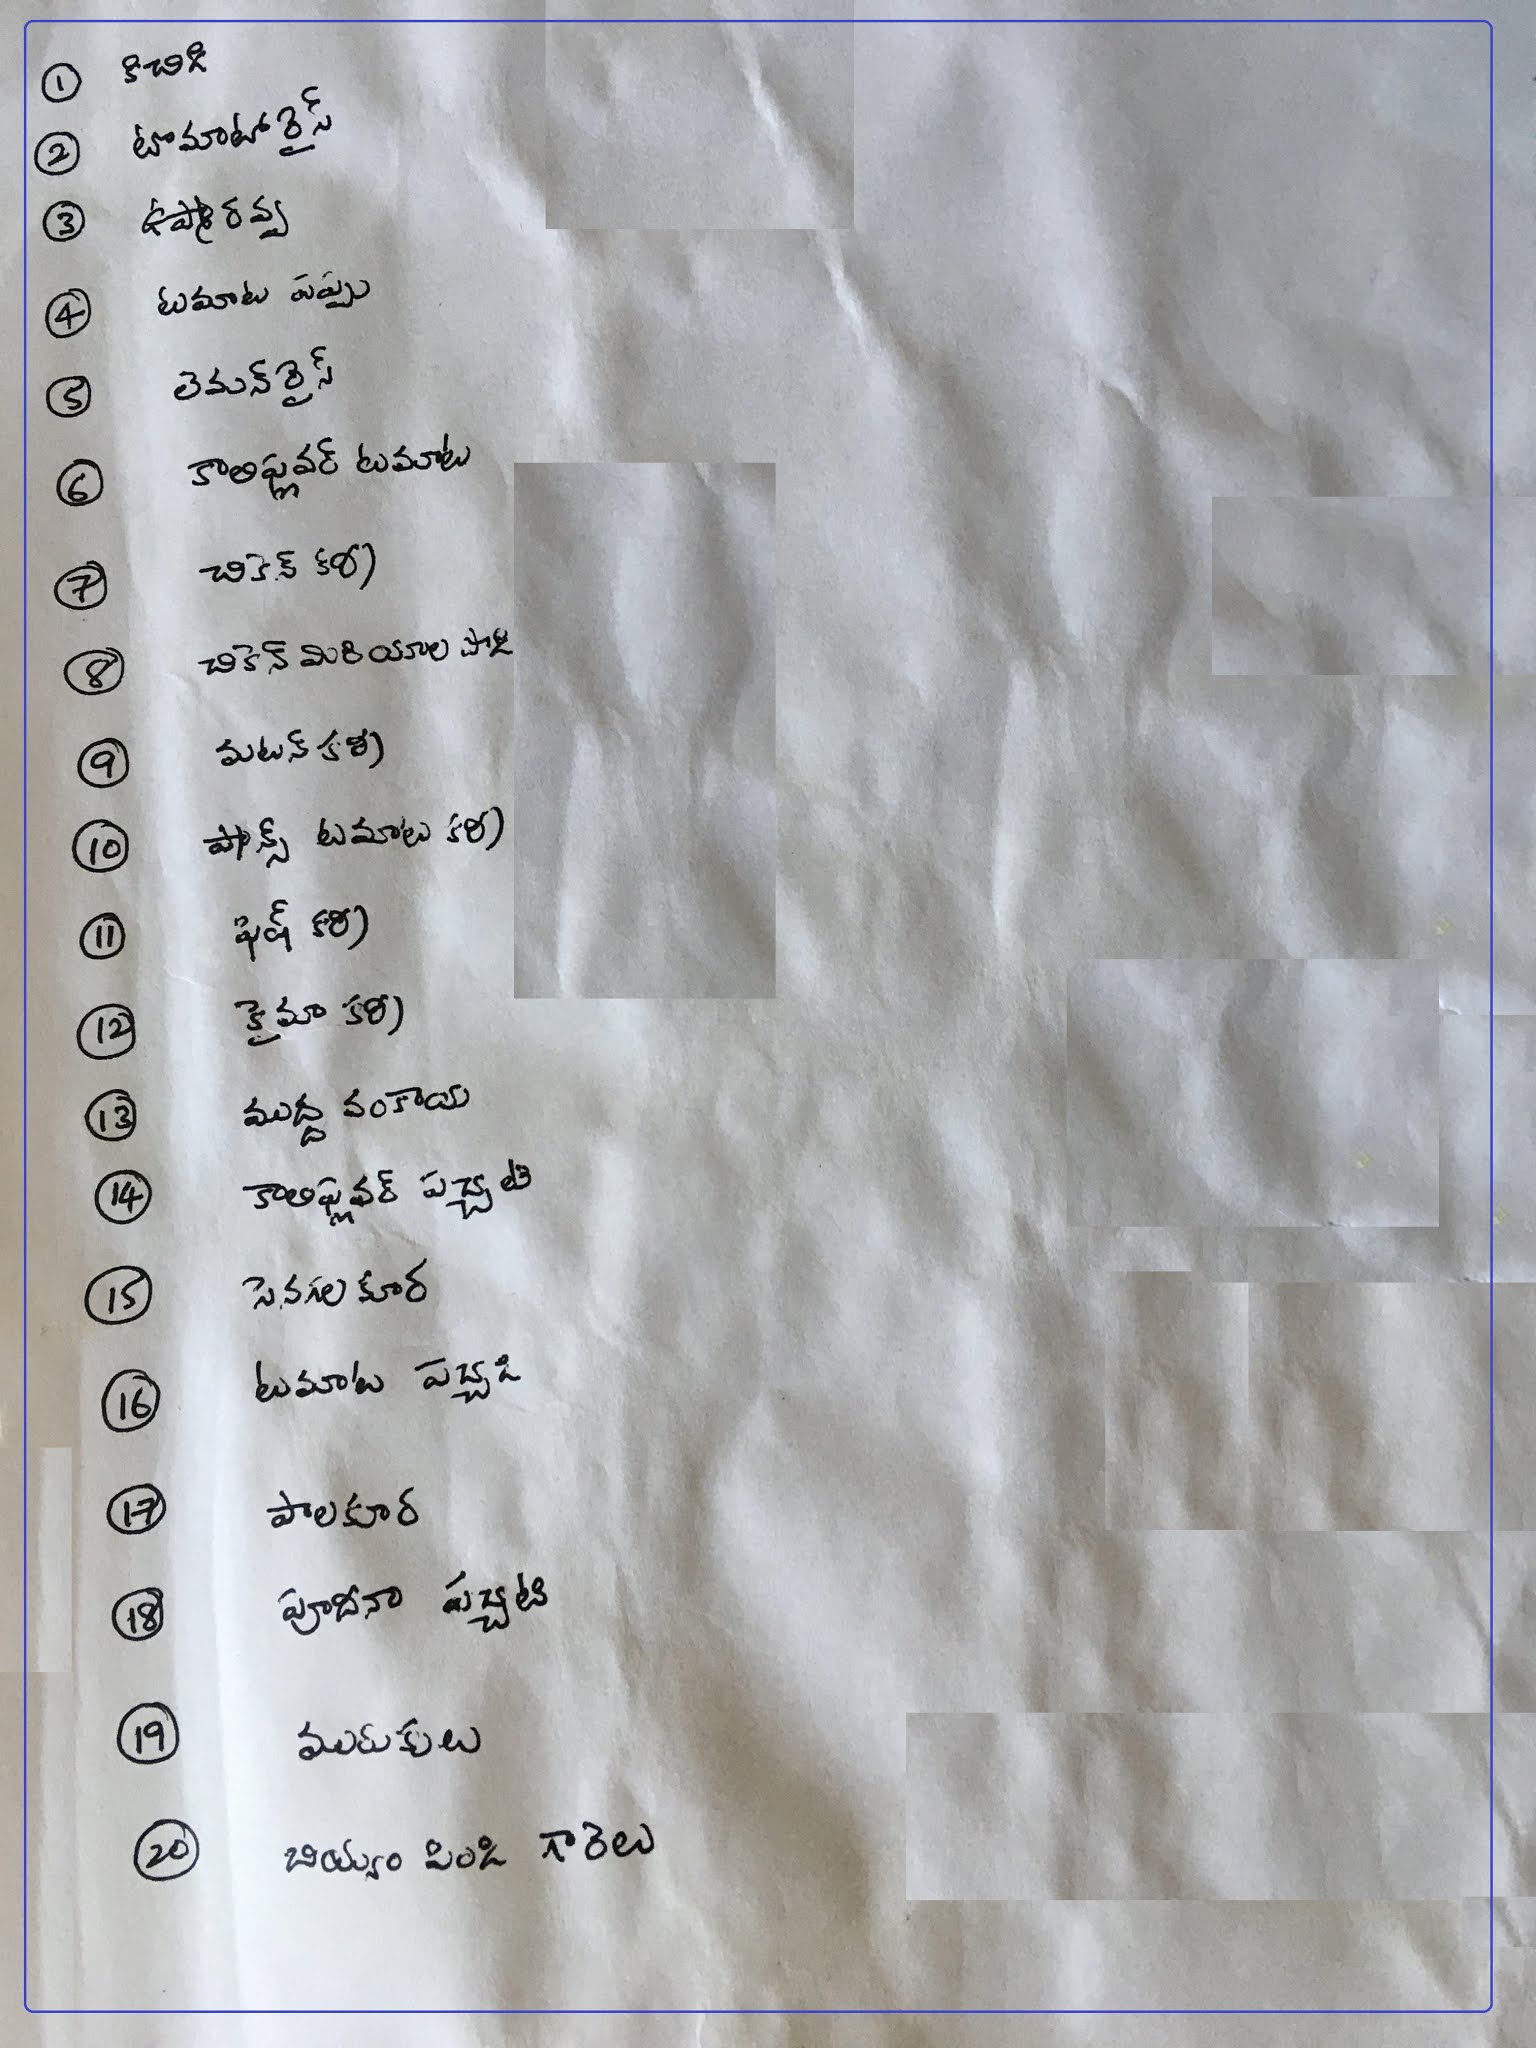 1 కిచిడి
2 టొమాటో రైస్
3 ఉప్మా రవ్వ
4 టుమాటు పప్పు
5 లెమన్ రైస్
6 కాలిఫ్లవర్ టుమాటు
7 చికెన్ కర్రీ
8 చికెన్ మిరియాల పొడి
9 మటన్ కర్రీ
10 ప్రాన్స్ టుమాటు కర్రీ
11 ఫిష్ కర్రీ
12 కైమా కర్రీ
13 ముద్ద వంకాయ
14 కాలిఫ్లవర్ పచ్చటి
15 సెనగల కూర
16 టుమాటు పచ్చడి
17 పాలకూర
18 పూదీనా పచ్చటి
19 మురుకులు
20 బియ్యం పిండి గారెలు